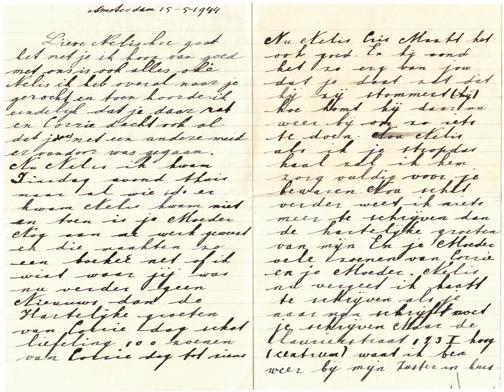 Amsterdam 15-5-1944
Lieve Nelis hoe gaat
het met je ik hoop van goed
met ons is ook alles oke
Nelis ik heb overal naar je
gezocht en toen hoorde ik
eindelijk dat je daar zat
en Corrie dacht ook al
dat je met een andere meid
er vandoor was gegaan.
Nu Nelis ik kwam
Dinsdag avond thuis
maar al wie of er
kwam Nelis kwam niet
en toen is je Moeder
Nog aan je werk geweest
en die maakten zo
een boeket net of ik
wist waar jij was
nu verder geen
Nieuws dan de
Hartelijke groeten
van Corrie dag schat
liefeling 100 zoenen
van Corrie dag tot ziens
Nu Nelis Cris Maakt het
ook goed. En hij vond
het zo erg van jou
dat je daar zat dat
hij zij stommert (hij)
hoe komt hij daar nu
weer bij om zo iets
te doen. Nelis
als ik je stropdas
haal zal ik hem
zorg vuldig voor je
bewaren Nou schat
verder weet ik niets
meer te schrijven dan
de hartelijke groeten
van mijn En je Moeder
vele zoenen van Corrie
en je Moeder. Nelis
nu vergeet ik haast
te schrijven als je
naar mijn schrijft moet
je schrijven Naar de
193 I hoog
(centrum) want ik ben
weer bij mijn Zuster in huis